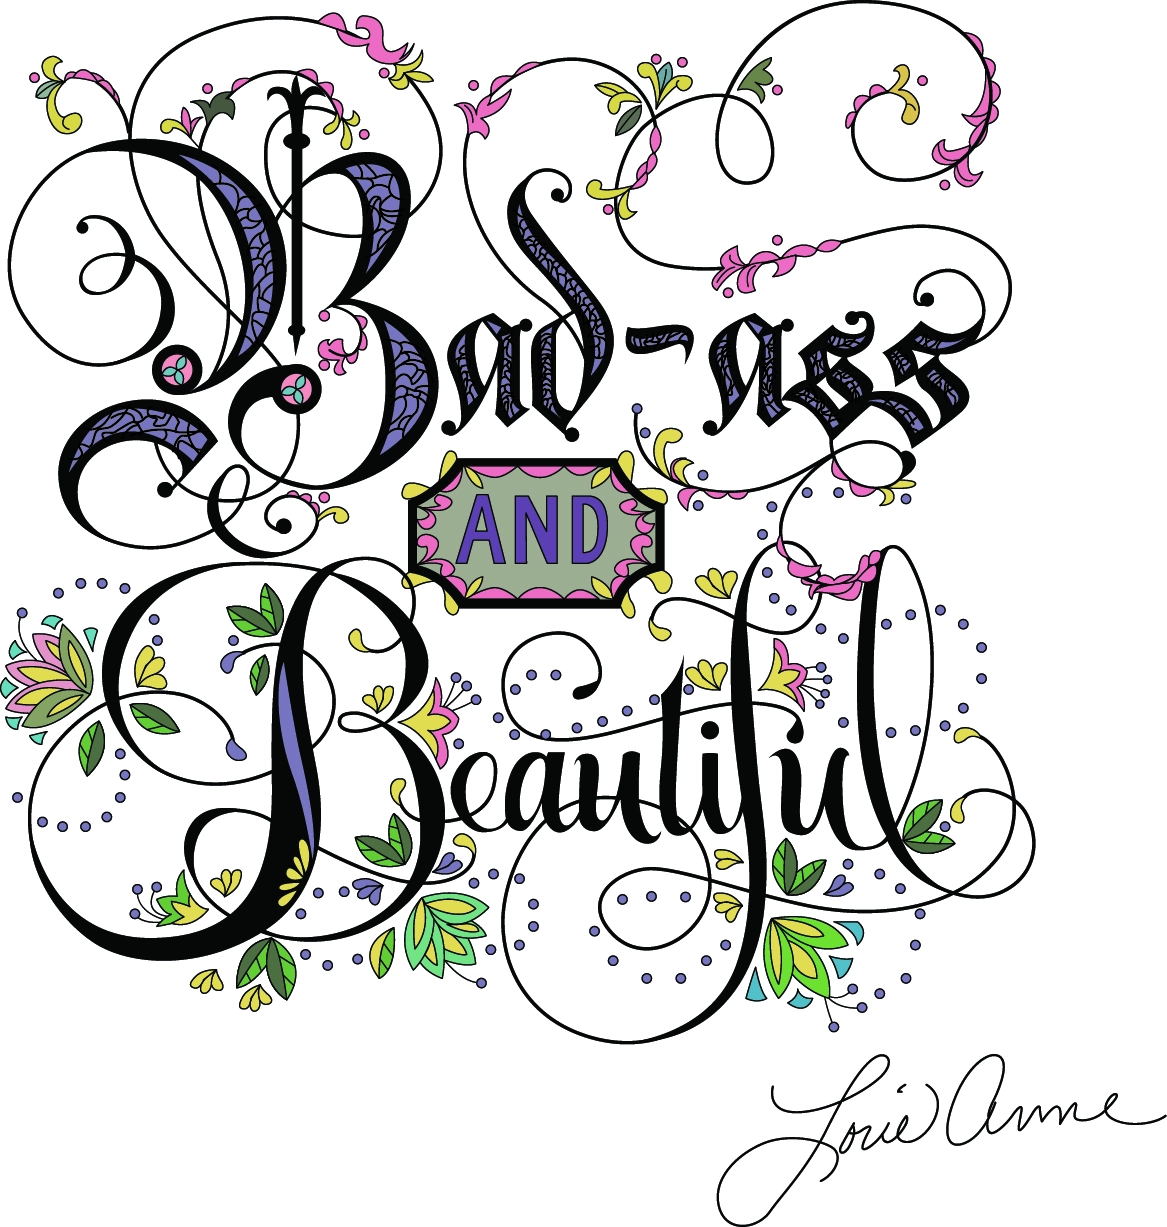 Bad-ass
AND
Beautiful
Lorie Anne